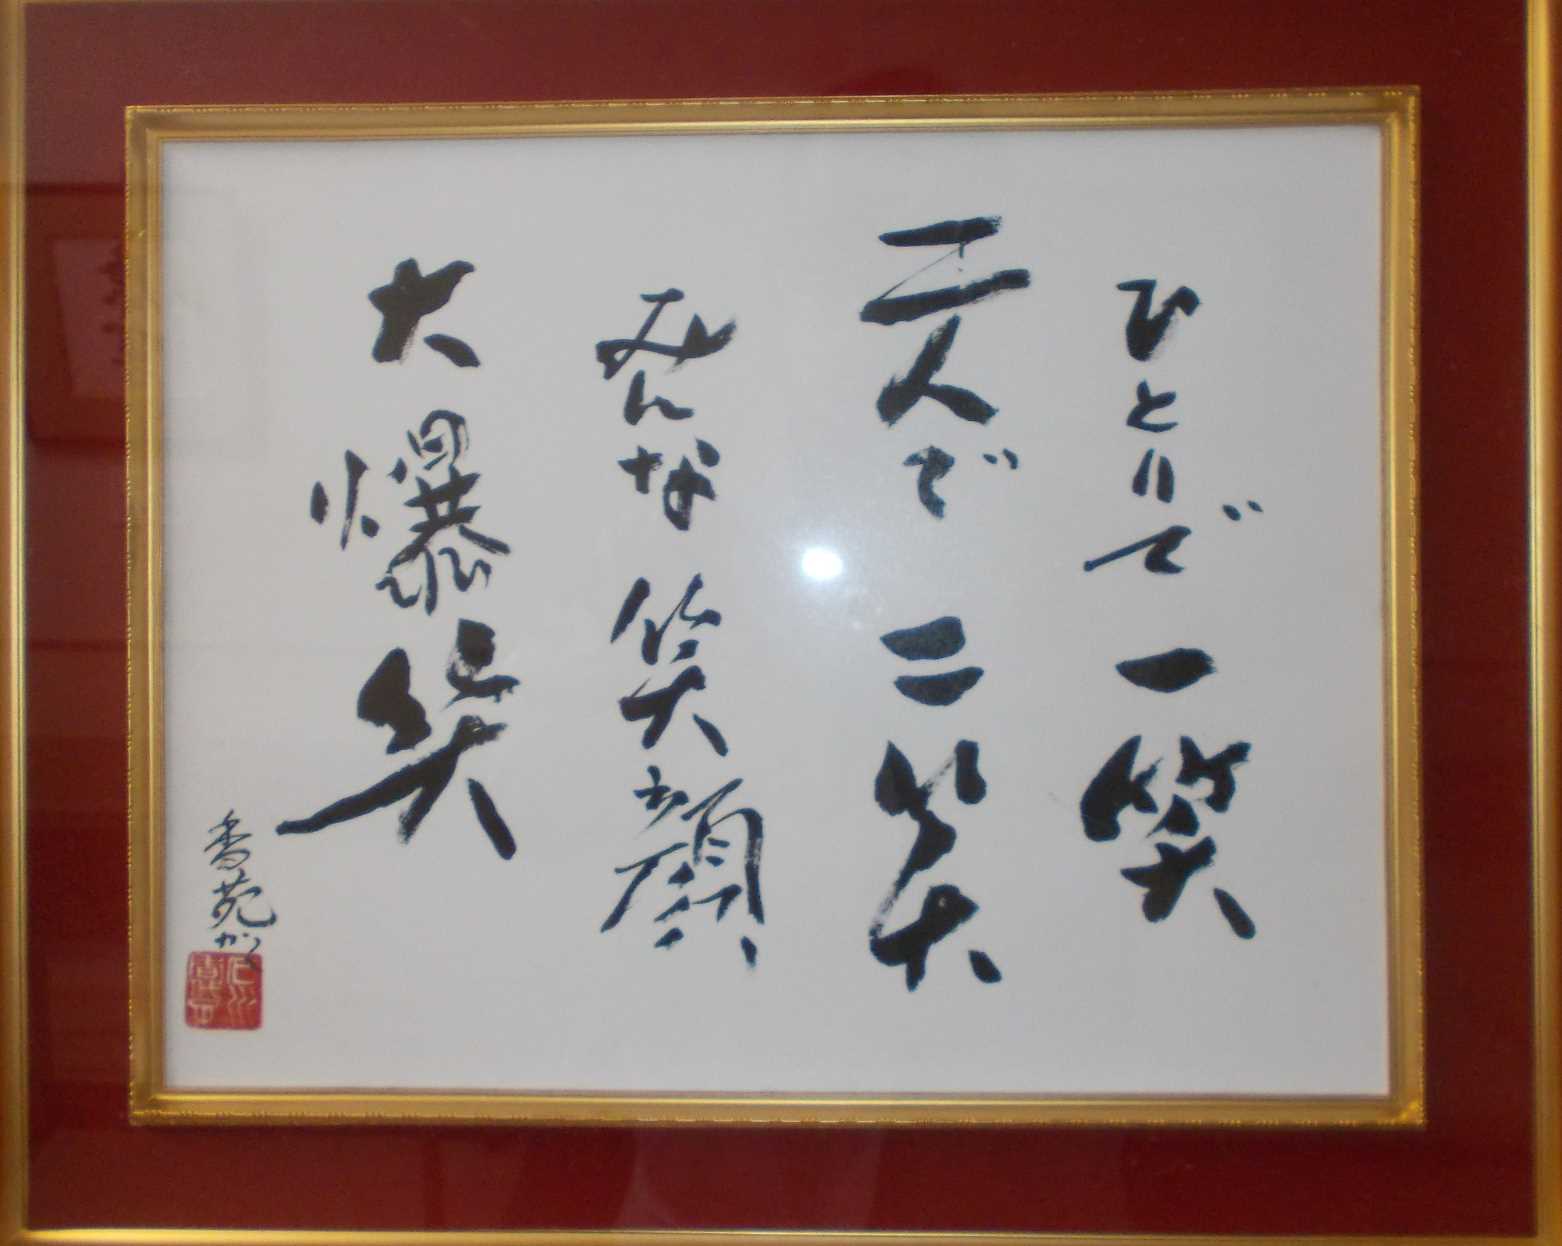 ひとりで一笑
二人で二笑
みんな笑顔
大爆笑
香苑かく